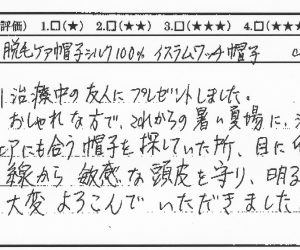 評価) 1.□(★) 2.□(★★) 3.□(★★★) 4.□(★★★★
脱毛ケア帽子シルク100% イスラムワッチ帽子
治療中の友人にプレゼントしました。
おしゃれな方で、これからの暑い夏場に、
ェアにも合う帽子を探していた所、目に
線から敏感な頭皮を守り、明る
大変よろこんでいただきました